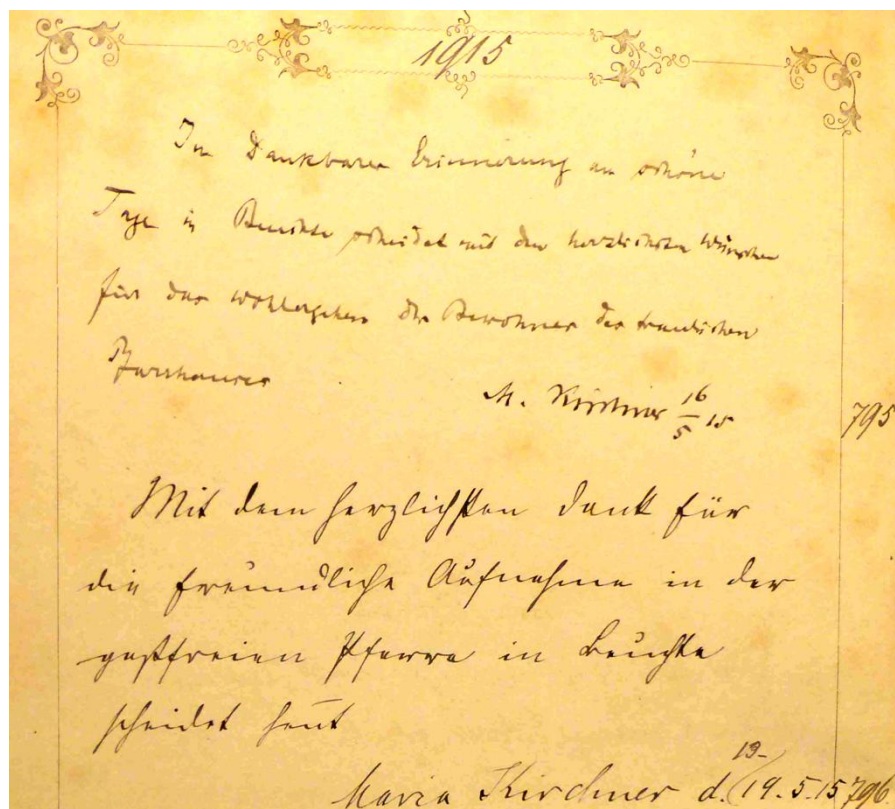 1915
In dankbarer Erinnerung an schöne
Tage in Beuchte scheidet mit den herzlichsten Wünschen
für das Wohlergehen der Bewohner des traulichen
Pfarrhauses
M. Kirchner 16/5 15
795
Mit dem herzlichsten Dank für
die freundliche Aufnahme in der
gastfreien Pfarre in Beuchte
scheidet heut
Maria Kirchner d. 13-/19. 5. 15 796